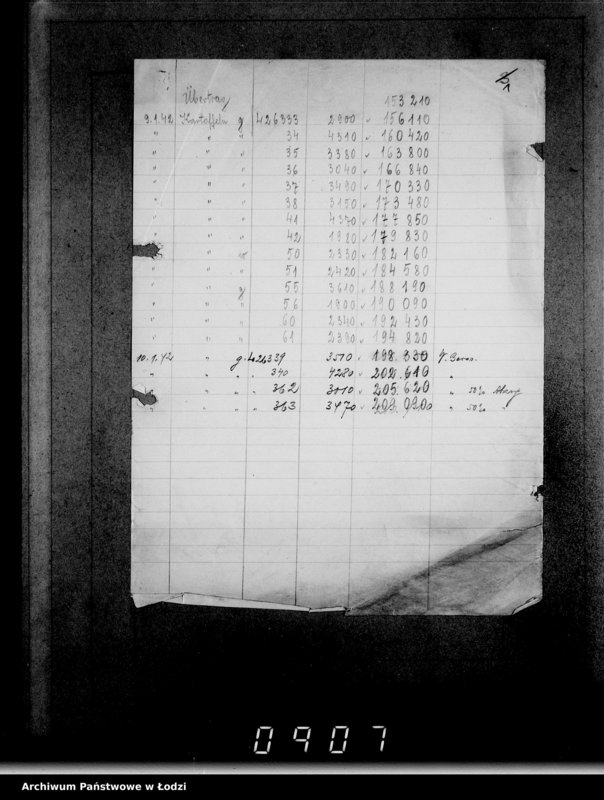 Übertrag 153 210
9.1.42 Kartoffeln g 426333 2900 v 156 110
" " " 34 4310 v 160 420
" " " 35 3380 v 163 800
" " " 36 3040 v 166 840
" " " 37 3490 v 170 330
" " " 38 3150 v 173 480
" " " 41 4370 v 177 850
" " " 42 1980 v 179 830
" " 50 2330 v 182 160
" " " 51 2420 v 184 580
" " g 55 3610 v 188 190
" " " 56 1900 v 190 090
" " " 60 2340 v 192 430
" " " 61 2390 v 194 820
10.1.42 " g. 426339 3510 v 198 330
" " " 340 4280 v 202 610 "
" " " 362 3010 v 205 620 " 50%
" " " 363 3470 v 209 090 " 50% "
0907
Archiwum Państwowe w Łodzi